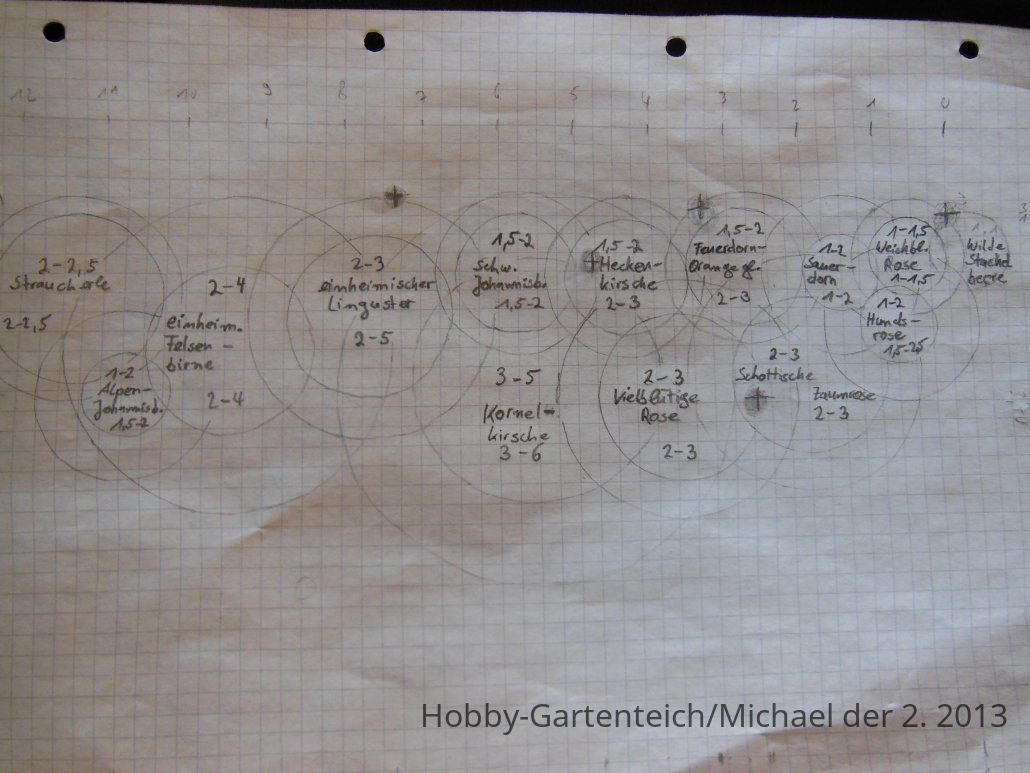 12 11 10 9 8 7 6 5 4 3 2 1 0
2-2,5
Straucherle
2-2,5
1-2
Alpen-
Johannisb.
1,5-2
2-4
einheim.
Felsen-
birne
2-4
2-3
einheimischer
Linguster
2-5
1,5-2
Schw.
Johannisb.
1,5-2
3-5
Kornel-
kirsche
3-6
1,5-2
Hecken-
kirsche
2-3
2-3
Vielblütige
Rose
2-3
1,5-2
Feuerdorn-
Orange gl.
2-3
2-3
Schottische
Zaunrose
2-3
1-2
Sauer-
dorn
1-2
1-1,5
Weichbl.
Rose
1-1,5
1-2
Hunds-
rose
1,5-2,5
Wilde
Stachel
beere
Hobby-Gartenteich/Michael der 2. 2013